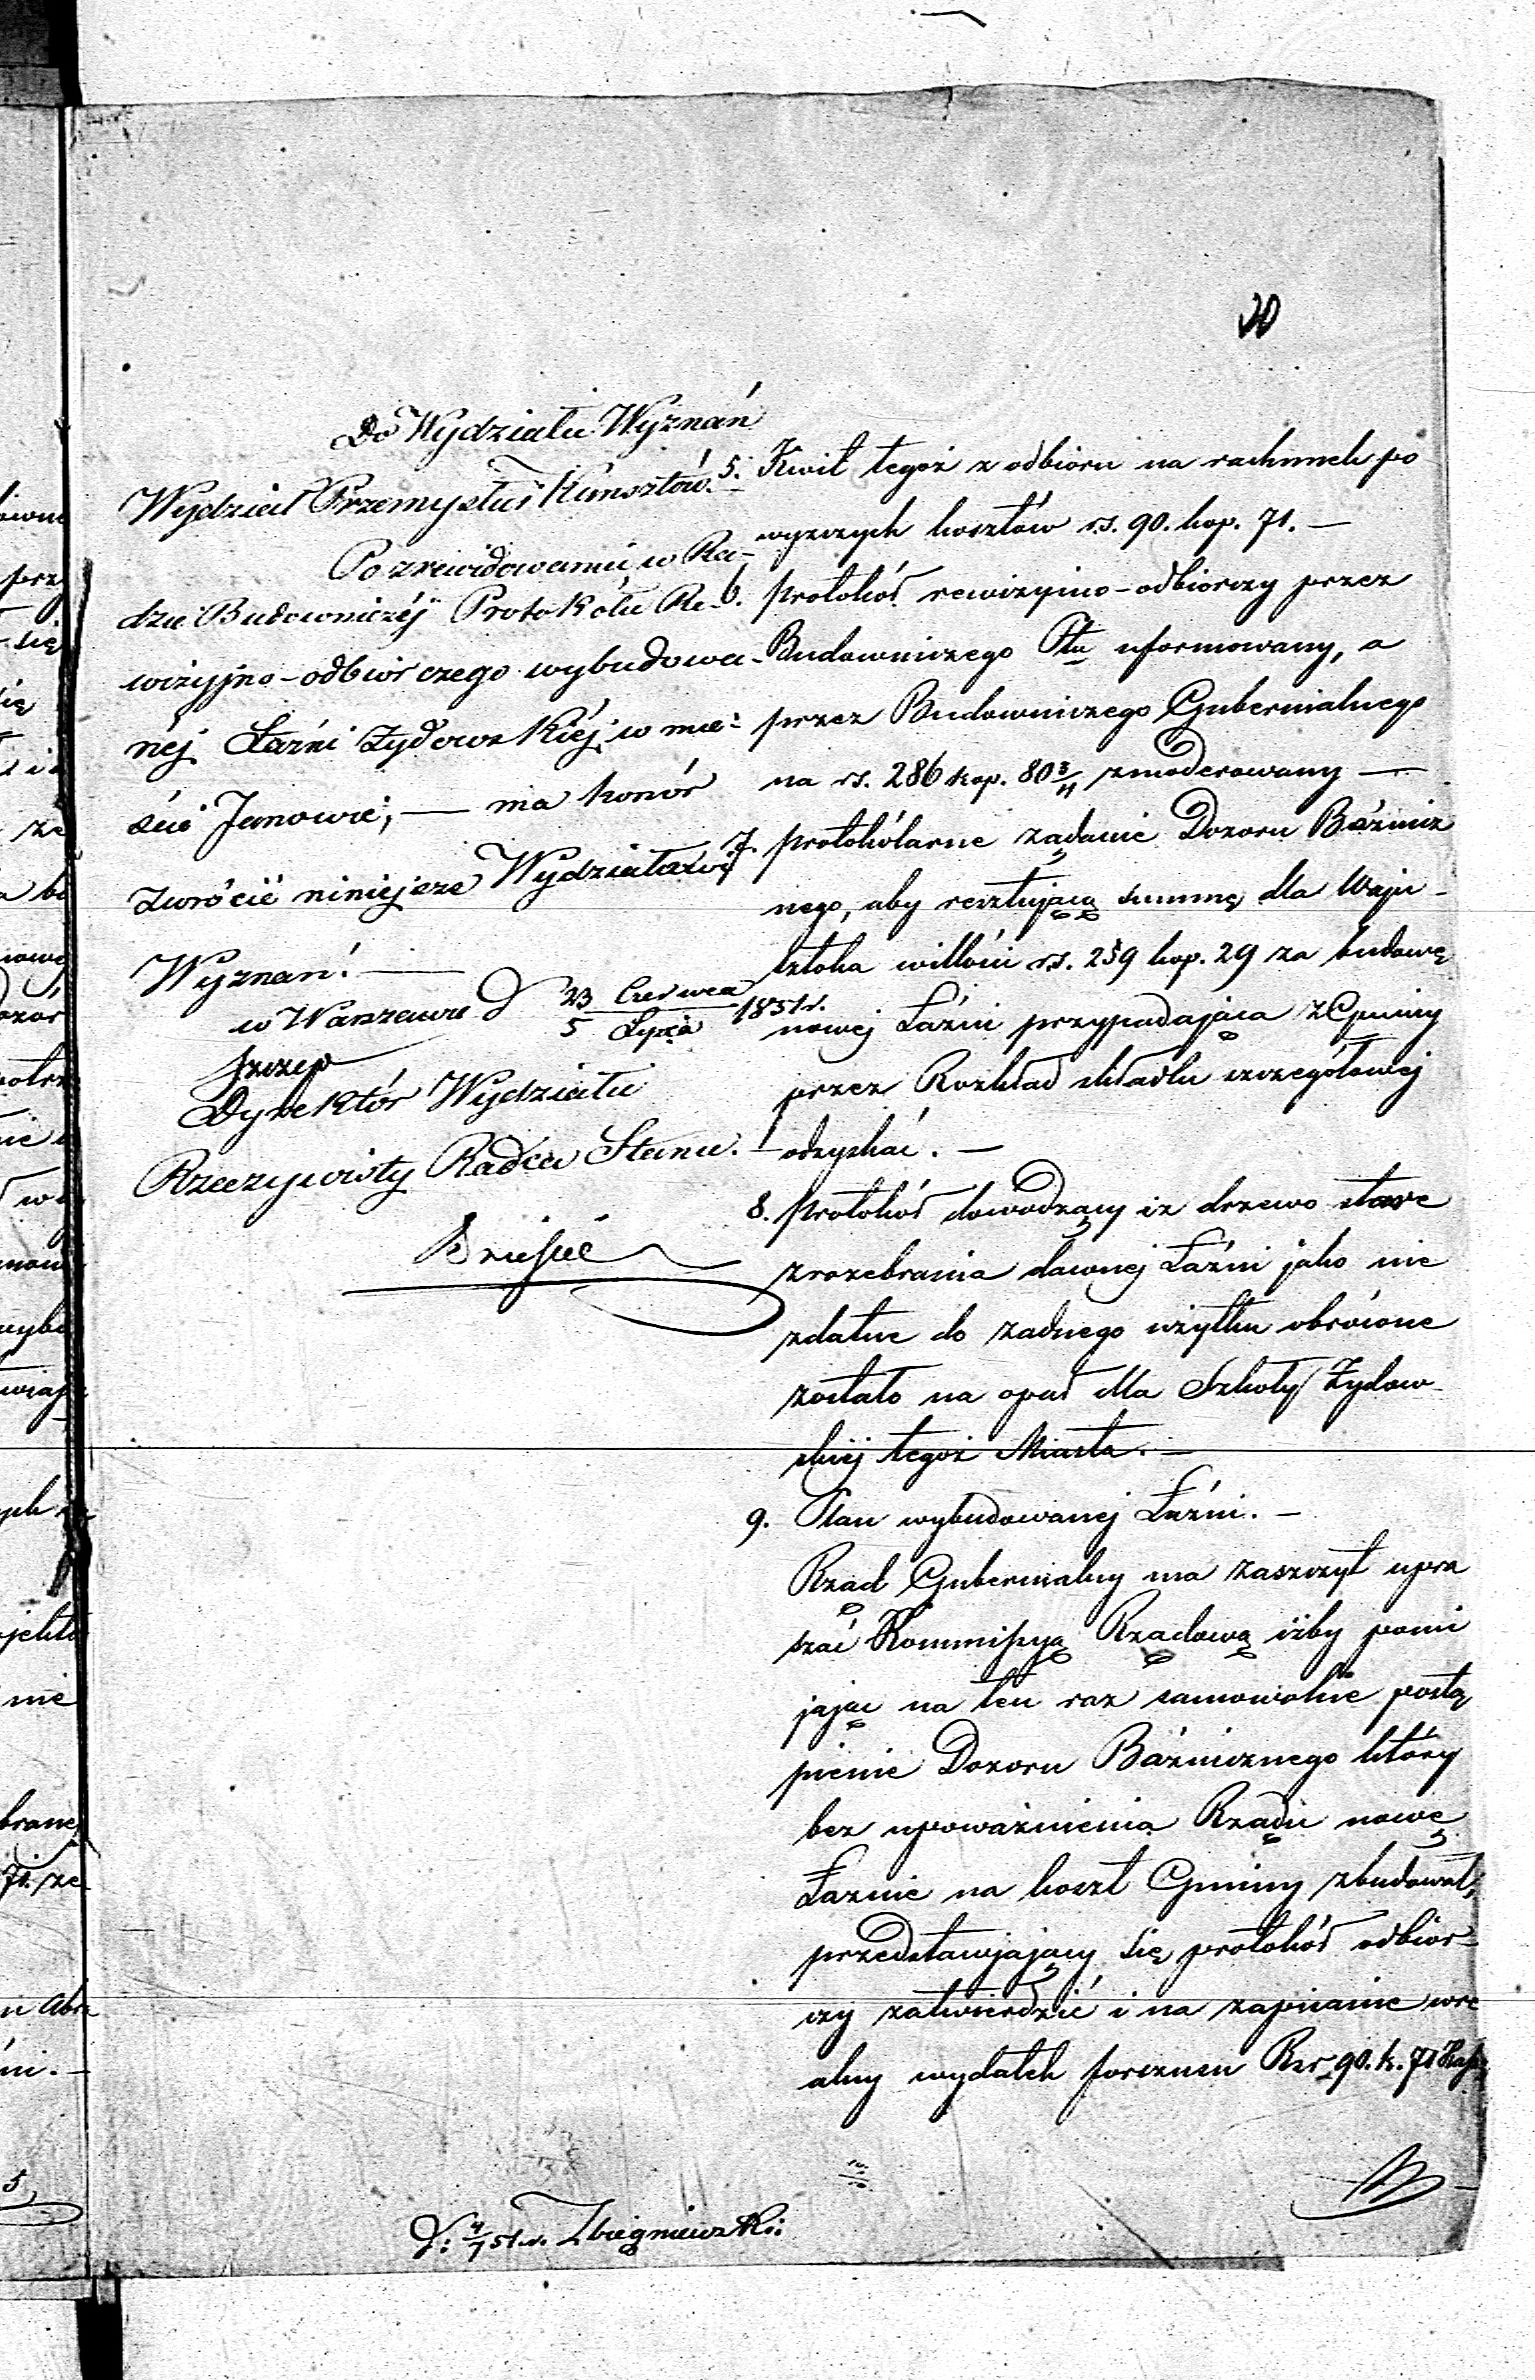 20
Do Wydziału Wyznań
Wydział Przemysłu i Kunsztów.
Po zrewidowaniu w Ra-
dzie Budowniczéj Protokółu Re-
wizyjno-odbiorczego wybudowa-
néj Łaźni Żydowskiéj w mie-
ście Janowie, — ma honór
zwrócić niniejsze Wydziałowi
Wyznań. —
w Warszawie d 23 Czerwca / 5 Lipca 1851 r.
Dyrektór Wydziału
Rzeczywisty Radca Stanu.
5. Kwit tegoż z odbioru na rachunek po
wyższych kosztów rs. 90. kop. 71. —
6. protokół rewizyino-odbiorczy przez
Budowniczego Ptu uformowany, a
przez Budowniczego Gubernialnego
na rs. 286 kop. 80 3/11 zmoderowany —
7. protokólarne żądanie Dozoru Bóżnicz
nego, aby resztującą summę dla Wajn-
sztoka w ilości rs. 259 kop. 29 za budowę
nowej Łaźni przypadająca z Gminy
przez Rozkład składki szczegółowej
odzyskać. —
8. protokół dowodzący iż drzewo stare
z rozebrania dawnej Łaźni jako nie
zdatne do żadnego użytku obrócone
zostało na opał dla Szkoły Żydow-
skiej tegoż Miasta. —
9. Plan wybudowanej Łaźni. —
Rząd Gubernialny ma zaszczyt upra
szać Kommissyą Rządową iżby pomi
jając na ten raz samowolne postą
pienie Dozoru Bóżnicznego który
bez upoważnienia Rządu nowę
Łaznie na koszt Gminy zbudował,
przedstawjający się protokół odbior-
czy zatwierdzić i na zapisanie w re
alny wydatek forszusu Rsr 90. k. 71
d: 4/7 51 r. Zbigniewski